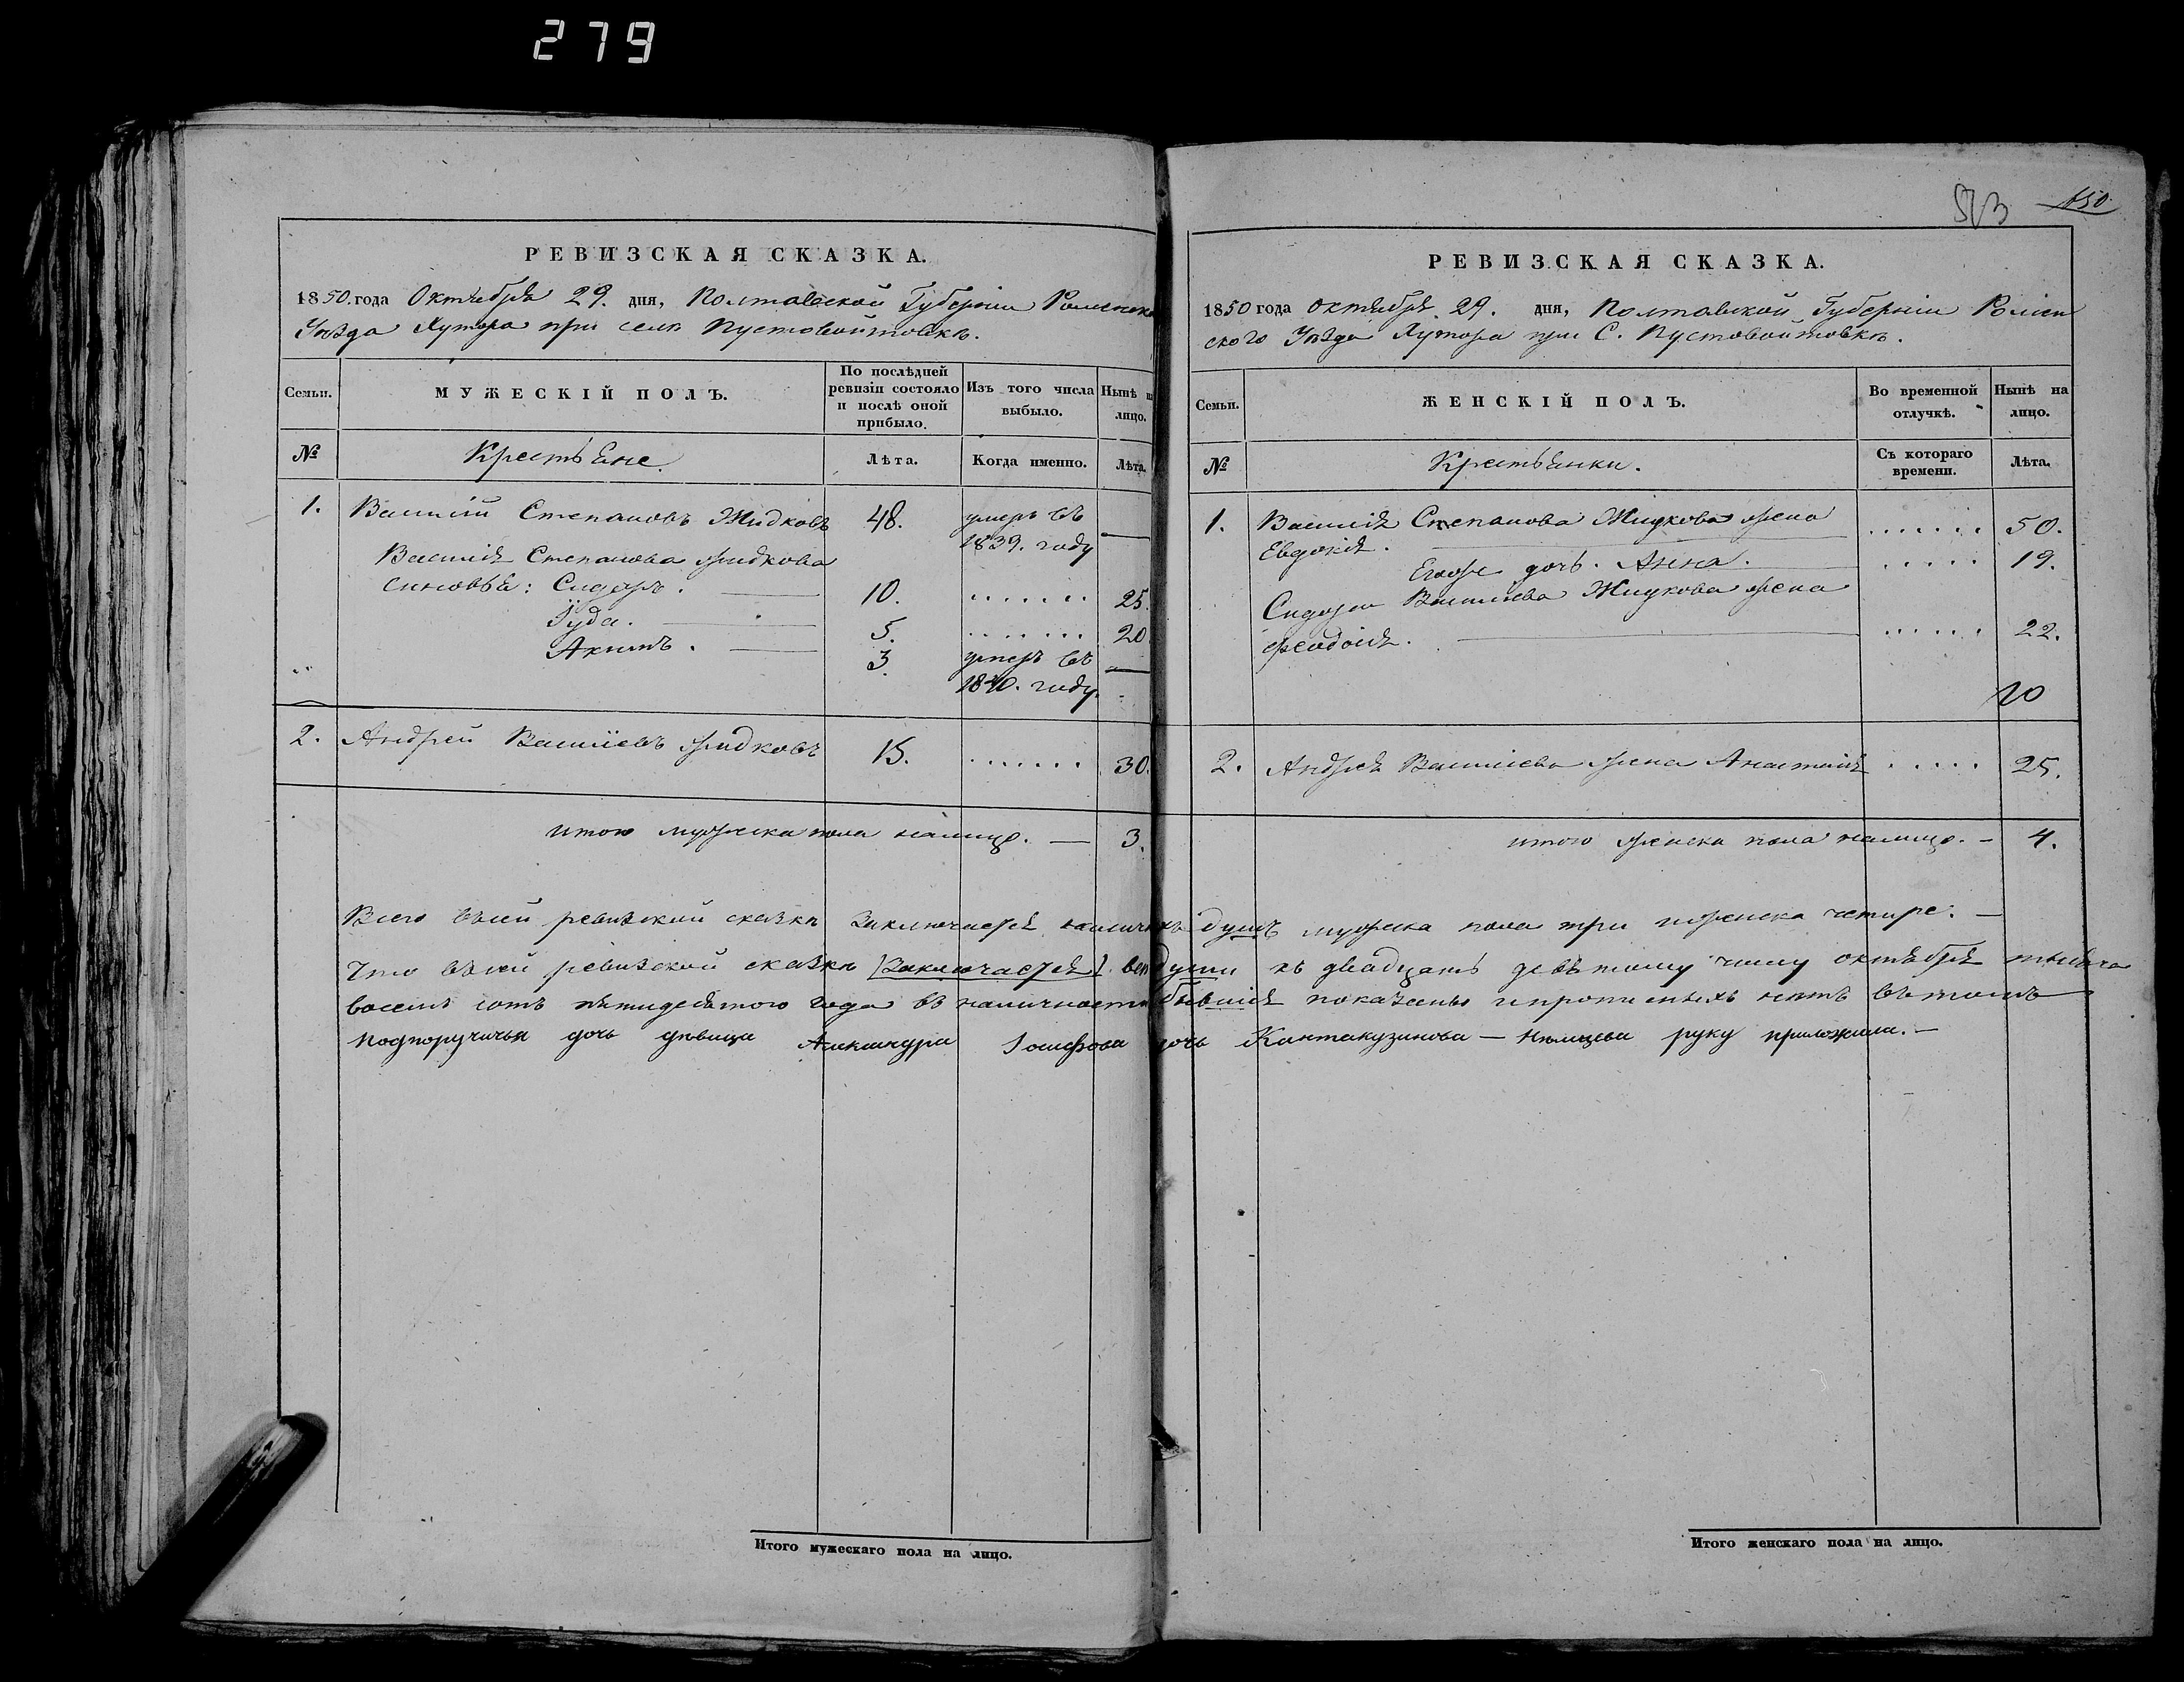 279
РЕВИЗСКАЯ СКАЗКА.
1850. года Октября 29. дня, Полтавской Губерніи Роменска
Уѣзда Хутора при селѣ Пустовойтовкѣ.
Семьи.
МУЖЕСКІЙ ПОЛЪ.
По послѣдней ревизіи состояло и послѣ оной прибыло.
Изъ того числа выбыло.
Нынѣ на лицо.
№
Крестьяне.
Лѣта.
Когда именно.
Лѣта.
1. Василій Степановъ Жидковъ 48. умеръ въ 1839. году —
Василія Степанова Жидкова
синовья: Сидоръ. 10. ....... 25.
Іуда. 5. ....... 20.
Акимъ. 3. умеръ въ —
1840. году.
2. Андрей Василіевъ Жидковъ 15. ....... 30.
итого мужеска пола налицо. — 3.
573 150
РЕВИЗСКАЯ СКАЗКА.
1850 года октября 29. дня, Полтавской Губерніи Ромен
ского Уѣзда Хутора при С. Пустовойтовкѣ.
Семьи.
ЖЕНСКІЙ ПОЛЪ.
Во временной отлучкѣ.
Нынѣ на лицо.
№
Крестьянки.
Съ котораго времени.
Лѣта.
1. Василія Степанова Жидкова жена ...... 50.
Евдокія.
Егоже дочь. Анна. ..... 19.
Сидора Василіева Жидкова жена
Феодосія. ...... 22.
20
2. Андрея Василіева жена Анастасія ..... 25.
итого женска пола налицо. — 4.
Всего въсей ревизской сказкѣ заключается наличнихъ душъ мужеска пола три иженска четире. —
Что въсей ревизской сказкѣ [заключается] всѣ души къ двадцать девятому числу октября тысяча
восемь сотъ пятидесятого года въ наличности бывшія показаны ипрописныхъ нѣтъ въ томъ
подпоручичья дочь дѣвица Александра Іосифова дочь Кантакузинова — Нѣмцева руку приложила. —
Итого мужескаго пола на лицо.
Итого женскаго пола на лицо.